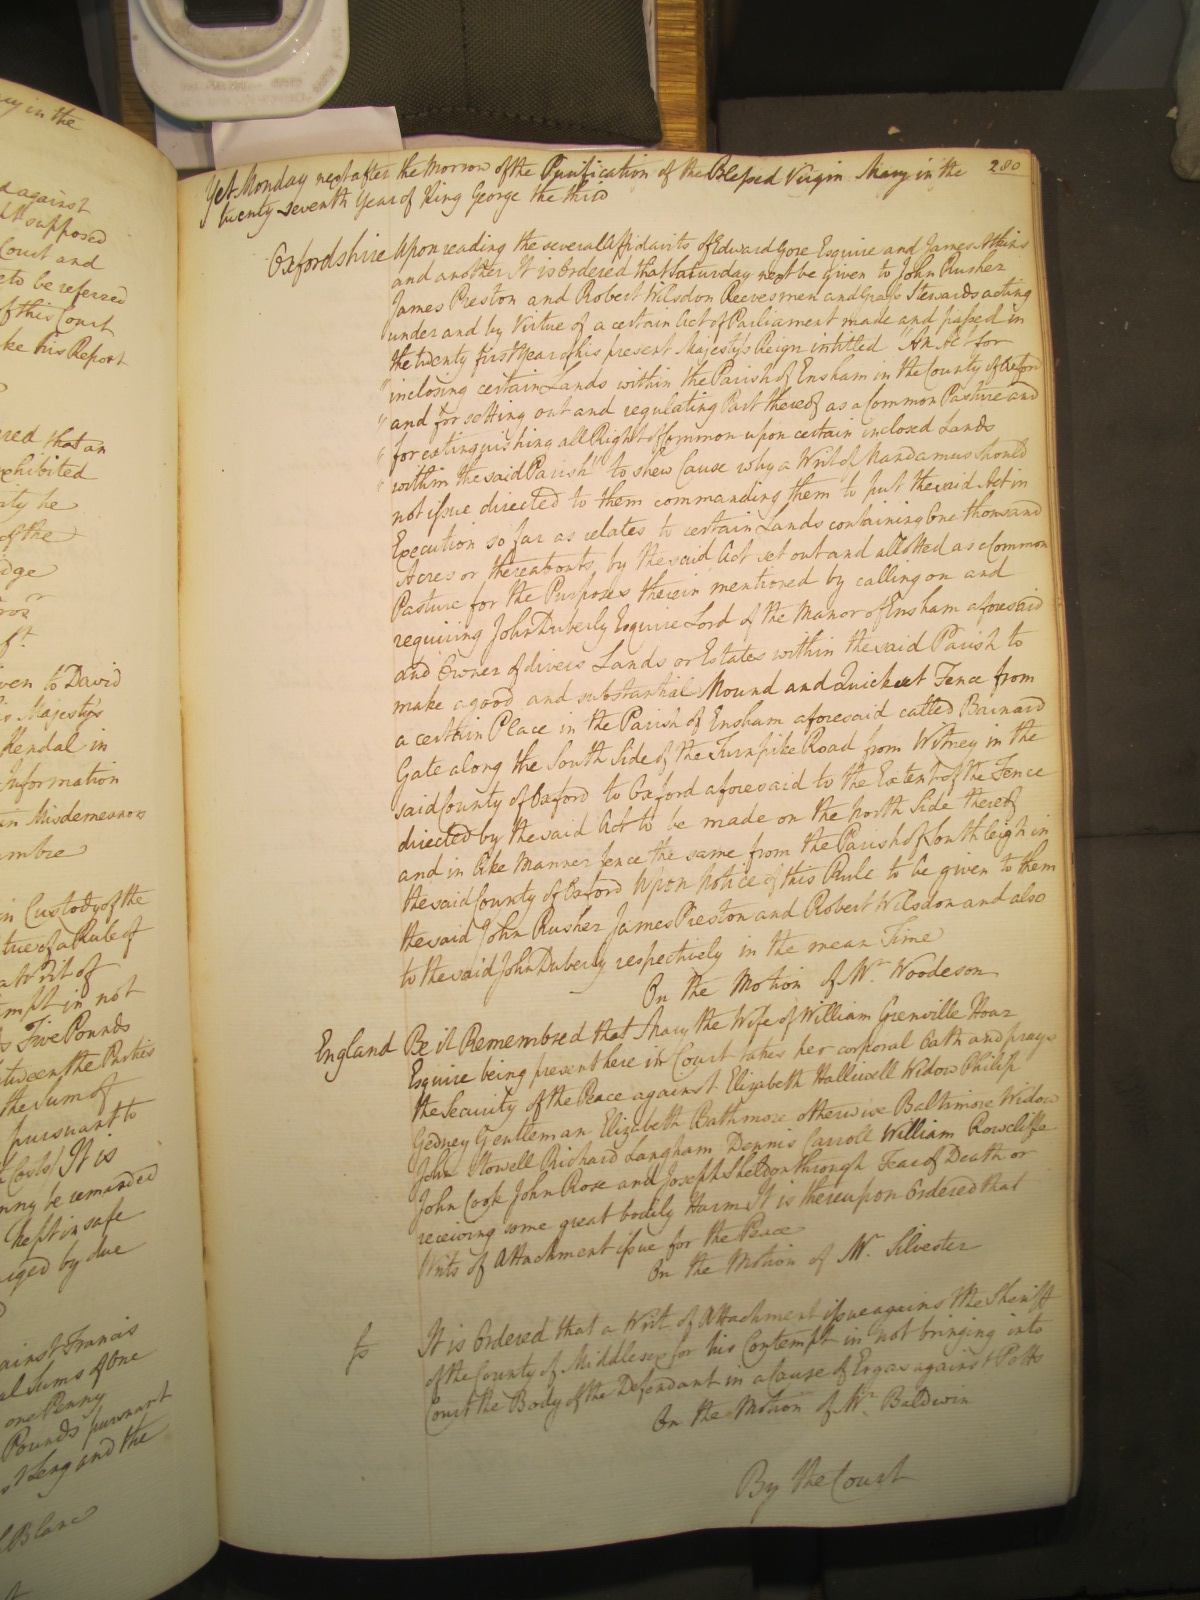 ary in the
against
supposed
Court and
to be referred
of this Court
ke his Report
red that an
exhibited
he
of the
ven to David
Majestys
Kendal in
Information
Misdemeanors
in Custody of the
tue of a Rule of
a Writ of
in not
Five Pounds
between the Parties
the Sum of
pursuant to
Costs It is
be remanded
kept in safe
by due
against Francis
Sums of One
one Penny
Pounds pursuant
and the
Blanc
Yet Monday next after the Morrow of the Purification of the Blessed Virgin Mary in the 280
twenty seventh Year of King George the third
Oxfordshire Upon reading the several Affidavits of Edward Gore Esquire and James Atkins
and another It is Ordered that Saturday next be given to John Rusher
James Preston and Robert Wilsdon Reevesmen and Grass Stewards acting
under and by Virtue of a certain Act of Parliament made and passed in
the twenty first Year of his present Majestys Reign intitled "An Act for
" inclosing certain Lands within the Parish of Ensham in the County of Oxford
" and for setting out and regulating Part thereof as a Common Pasture and
" for extinguishing all Right of Common upon certain inclosed Lands
" within the said Parish" to shew Cause why a Writ of Mandamus should
not issue directed to them commanding them to put the said Act in
Execution so far as relates to certain Lands containing One thousand
Acres or thereabouts by the said Act set out and allotted as a Common
Pasture for the Purposes therein mentioned by calling on and
requiring John Duberly Esquire Lord of the Manor of Ensham aforesaid
and Owner of divers Lands or Estates within the said Parish to
make a good and substantial Mound and Quickset Fence from
a certain Place in the Parish of Ensham aforesaid called Barnard
Gate along the South Side of the Turnpike Road from Witney in the
said County of Oxford to Oxford aforesaid to the Extent of the Fence
directed by the said Act to be made on the North Side thereof
and in like Manner fence the same from the Parish of Southleigh in
the said County of Oxford Upon Notice of this Rule to be given to them
the said John Rusher James Preston and Robert Wilsdon and also
to the said John Duberly respectively in the mean Time
On the Motion of Mr Woodeson
England Be it Remembred that Mary the Wife of William Grenville Hoar
Esquire being present here in Court takes her corporal Oath and prays
the Security of the Peace against Elizabeth Halliwell Widow Philip
Gedney Gentleman Elizabeth Bathmore otherwise Baltimore Widow
John Stowell Richard Langham Dennis Carroll William Rowcliffe
John Cook John Rose and Joseph Sheldon through Fear of Death or
receiving some great bodily Harm It is thereupon Ordered that
Writs of Attachment issue for the Peace
On the Motion of Mr Silvester
fs It is Ordered that a Writ of Attachment issue against the Sheriff
of the County of Middlesex for his Contempt in not bringing into
Court the Body of the Defendant in a Cause of Ergas against Potts
On the Motion of Mr Baldwin
By the Court